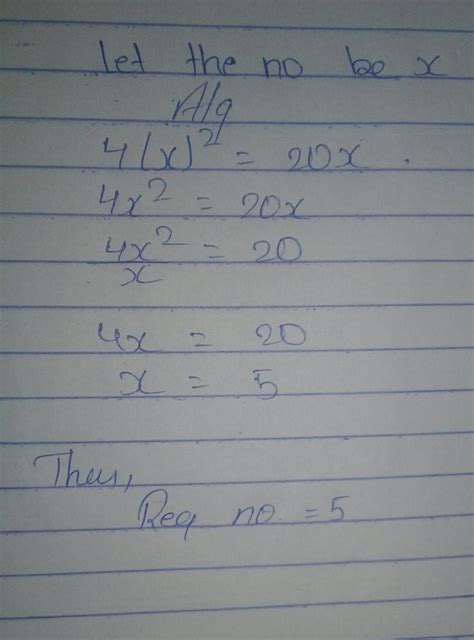 let the no be x
A/q
4(x)² = 20x .
4x² = 20x
4x²/x = 20
4x = 20
x = 5
Thus,
Req no = 5